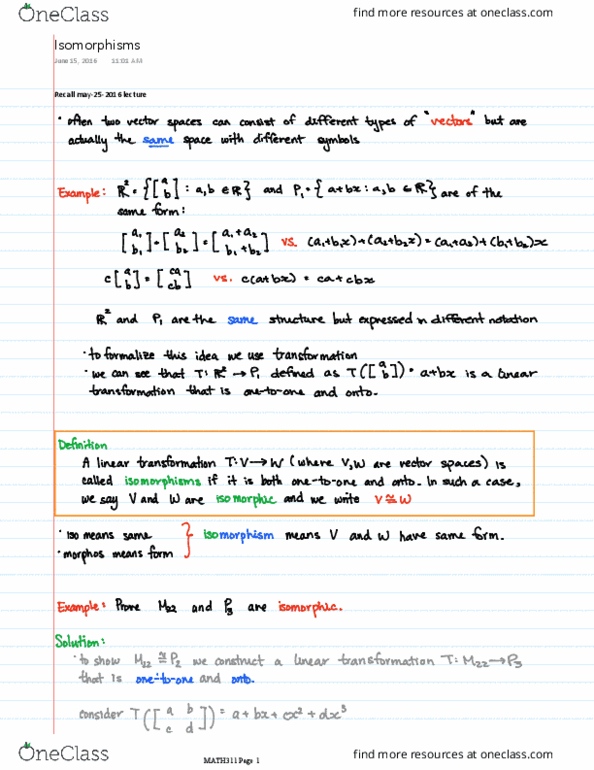 OneClass
find more resources at oneclass.com
Isomorphisms
June 15, 2016 11:01 AM
Recall may-25-2016 lecture
• often two vector spaces can consist of different types of "vectors" but are
actually the same space with different symbols
Example: ℝ² = {[a b] : a, b ∈ ℝ} and P₁ = {a+bx : a, b ∈ ℝ} are of the
same form:
[a₁ b₁] = [a₂ b₂] = [a₁+a₂ b₁+b₂] vs. (a₁+b₁x)+(a₂+b₂x) = (a₁+a₂)+(b₁+b₂)x
c[a b] = [ca cb] vs. c(a+bx) = ca+cbx
ℝ² and P₁ are the same structure but expressed in different notation
• to formalize this idea we use transformation
• we can see that T: ℝ² → P₁ defined as T([a b]) = a+bx is a linear
transformation that is one-to-one and onto.
Definition
A linear transformation T: V → W (where V, W are vector spaces) is
called isomorphisms if it is both one-to-one and onto. In such a case,
we say V and W are isomorphic and we write V ≅ W
• iso means same
• morphos means form
} isomorphism means V and W have same form.
Example: Prove M₂₂ and P₃ are isomorphic.
Solution:
• to show M₂₂ ≅ P₂ we construct a linear transformation T: M₂₂ → P₃
that is one-to-one and onto.
consider T([a b c d]) = a+bx+cx²+dx³
OneClass
MATH311 Page 1
find more resources at oneclass.com